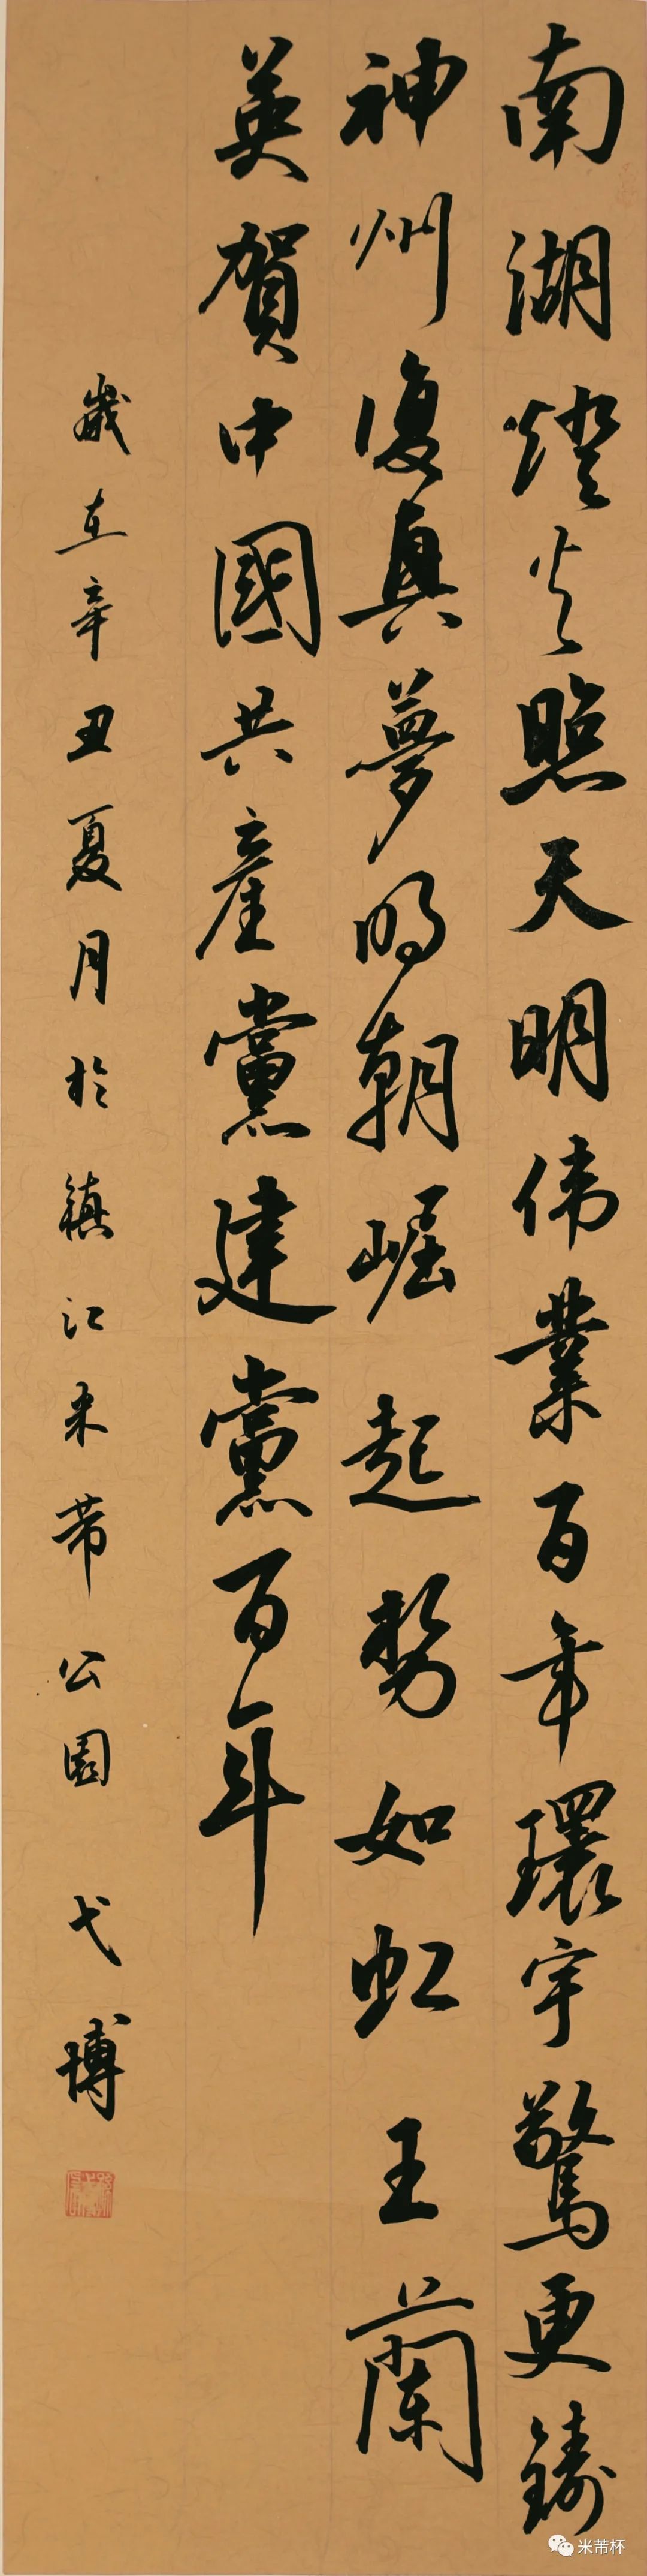 南湖燈火照天明偉業百年環宇驚更鑄
神州復真夢明朝崛起勢如虹王蘭
英賀中國共產黨建黨百年
歲在辛丑夏月於鎮江米芾公園弋博
米芾杯